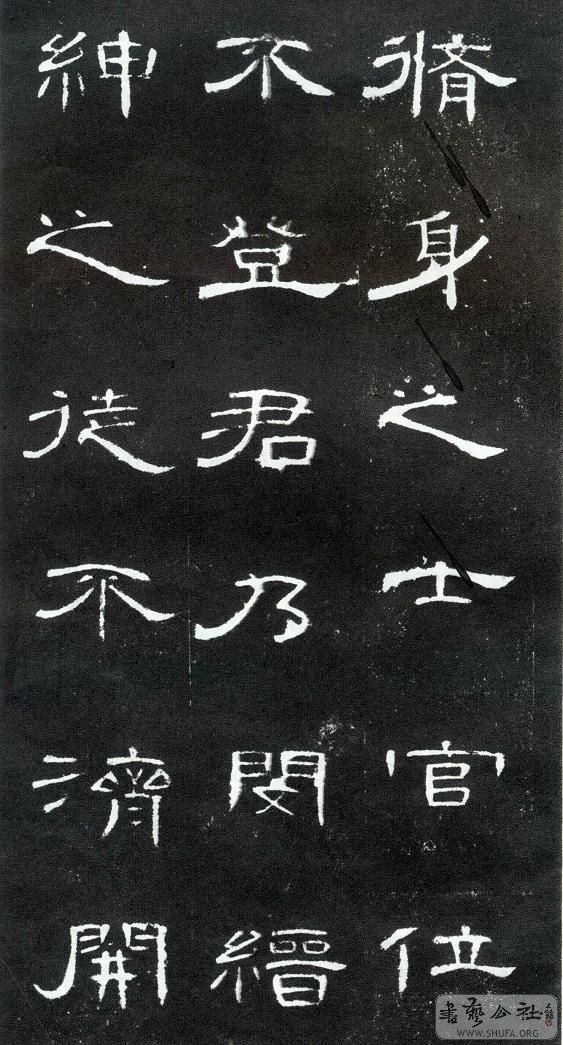 脩身之士官位
不登君乃閔縉
紳之徒不濟開
書藝公社
WWW.SHUFA.ORG